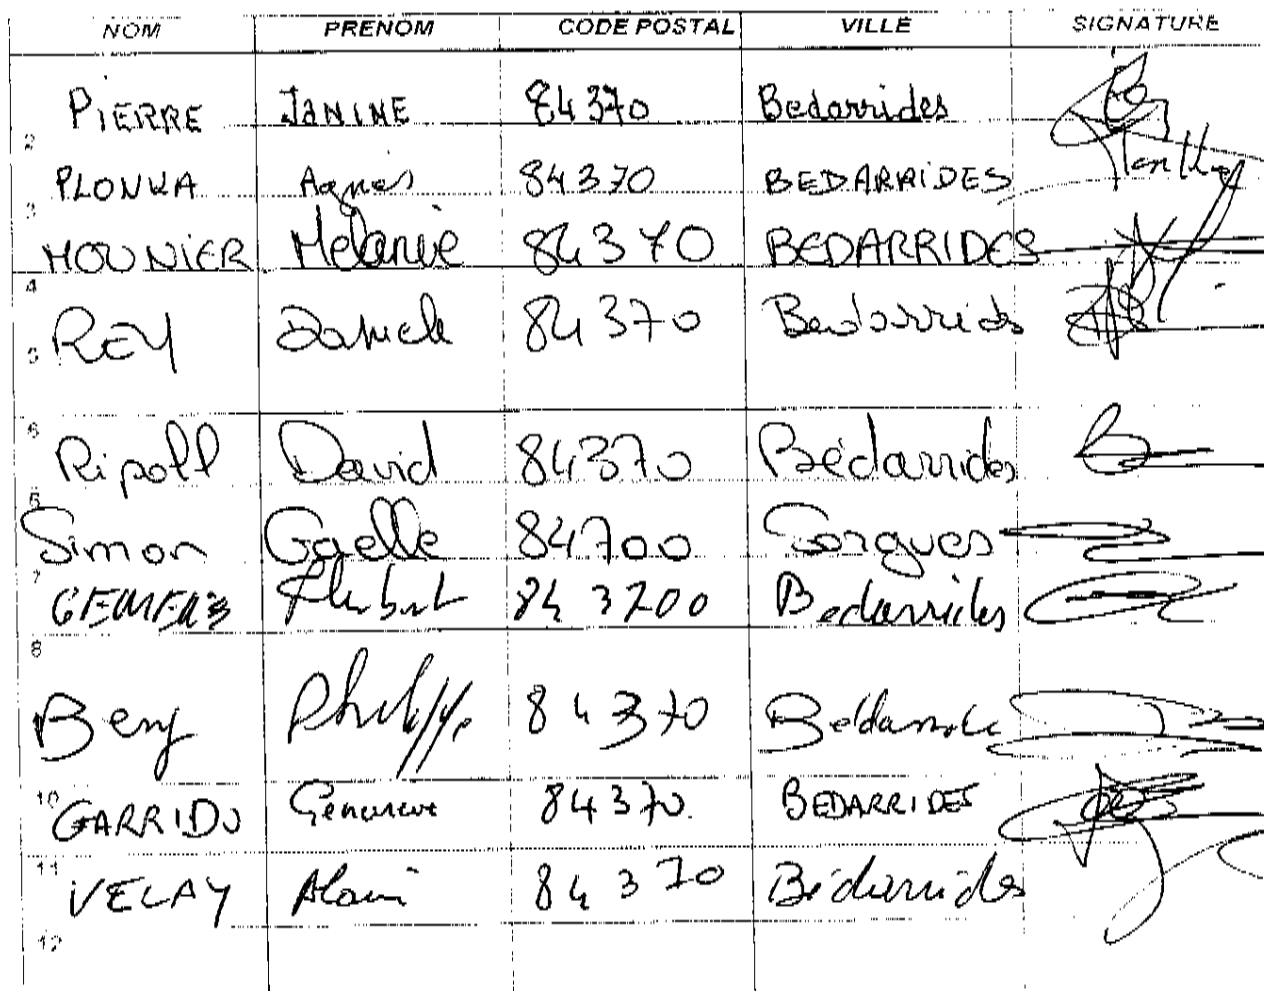 NOM PRENOM CODE POSTAL VILLE SIGNATURE
PIERRE JANINE 84370 Bedarrides
2
PLONKA Agnes 84370 BEDARRIDES
3
MOUNIER Melanie 84370 BEDARRIDES
4
REY Daniele 84370 Bedarrides
5
6
Ripoll David 84370 Bédarrides
6
Simon Gaelle 84700 Sorgues
7
84 3700 Bedarrides
8
Philippe 84370
10
GARRIDO Genevieve 84370. BEDARRIDES
11
VELAY Alain 84370 Bédarrides
12